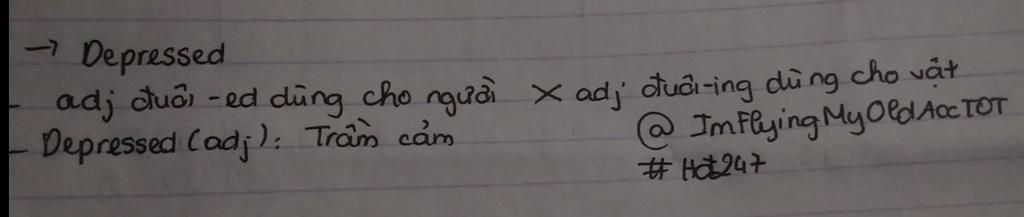 → Depressed
- adj đuôi -ed dùng cho người × adj đuôi-ing dùng cho vật
- Depressed (adj): Trầm cảm
@ ImFlyingMyOldAccTOT
# Hot247